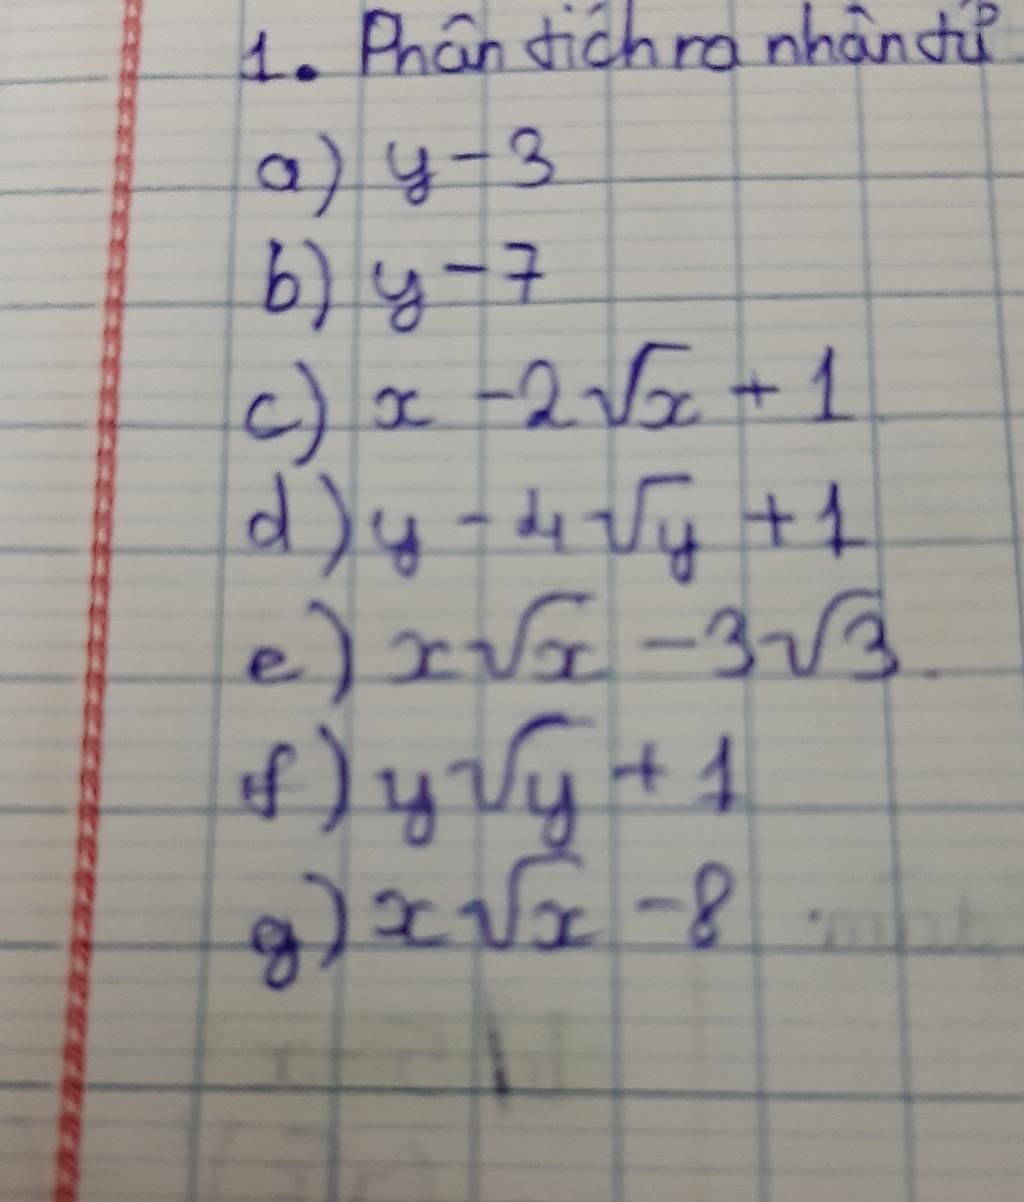 1. Phân tích ra nhân tử
a) y - 3
b) y - 7
c) x - 2√x + 1
d) y - 4√y + 1
e) x√x - 3√3
f) y√y + 1
g) x√x - 8